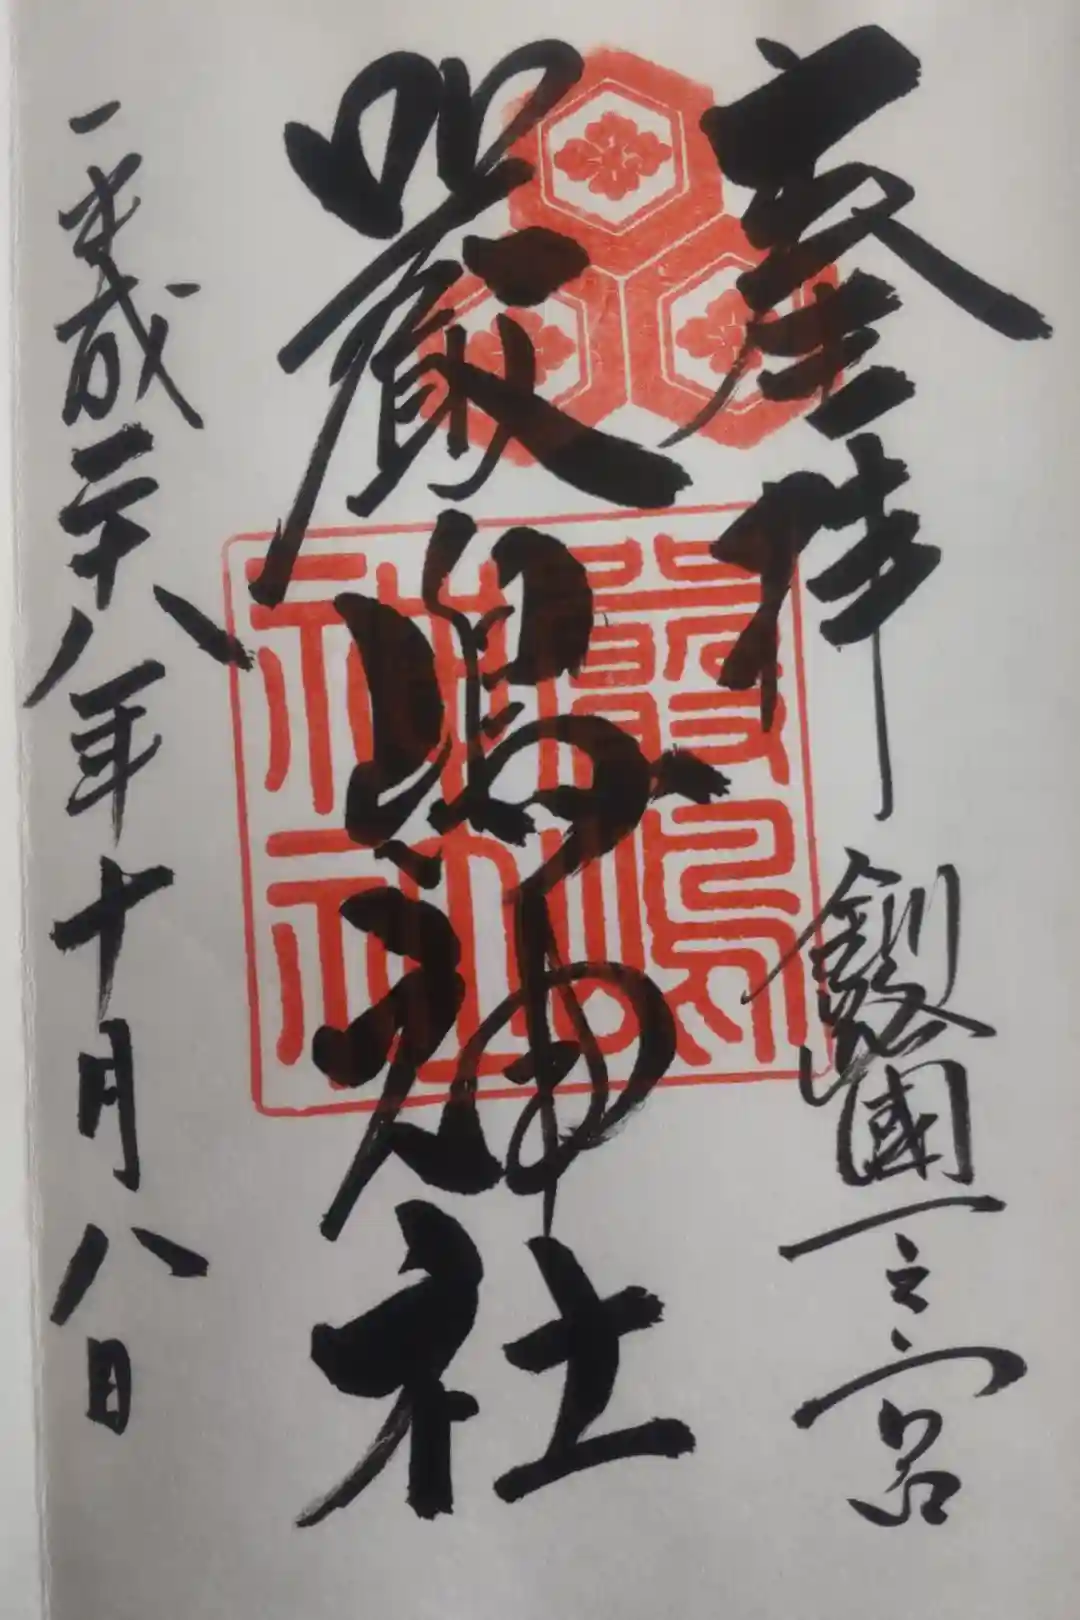 奉拝
釧路國一之宮
嚴嶋神社
嚴嶋
神社
平成二十八年十月八日